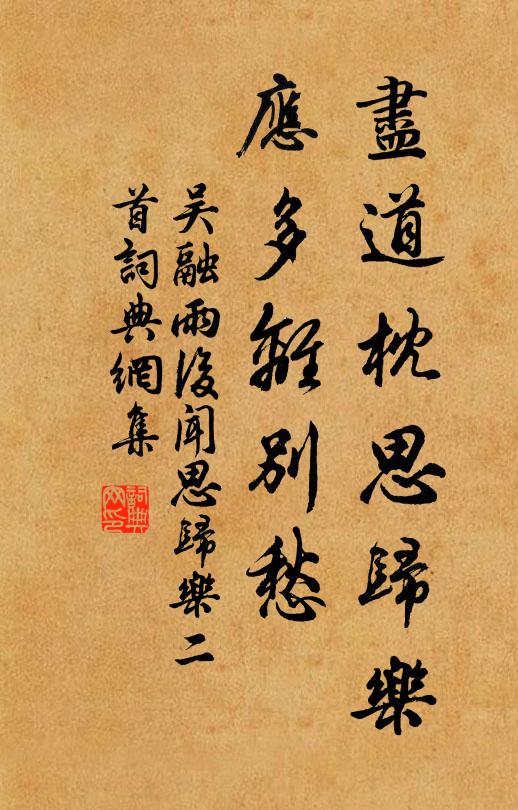 盡道枕思歸樂
應多離別愁
吳融雨後聞思歸樂二
首詞典網集
詞典
网印